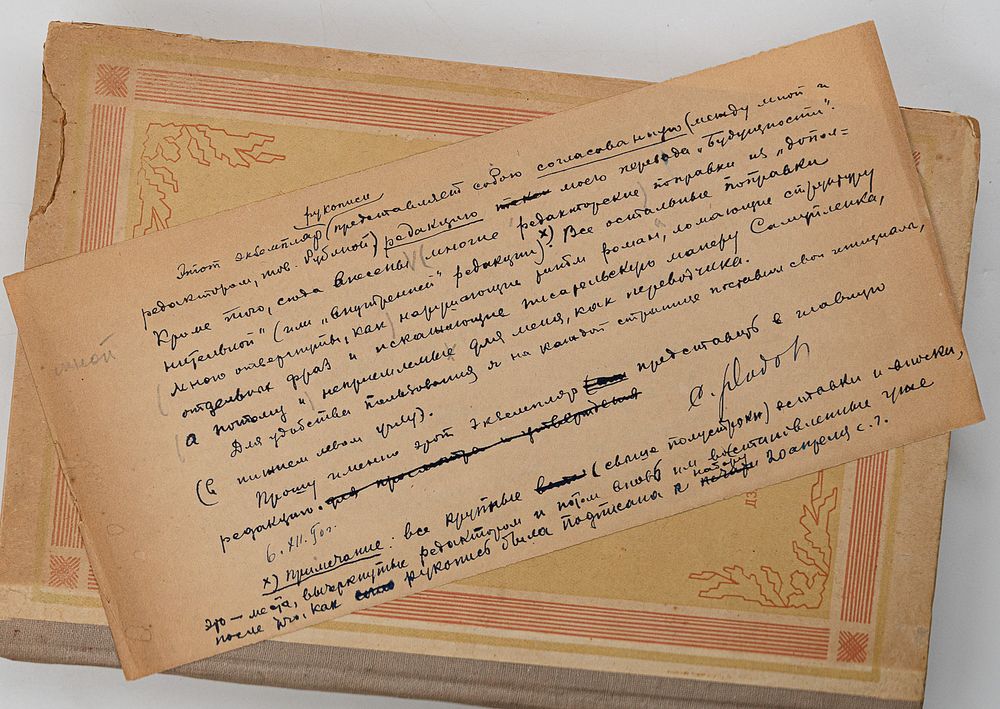 рукописи
Этот экземпляр (представляет собою согласованную (между мной и
редактором, тов. Рубиной) редакцию моего перевода „Будущности".
Кроме того, сюда внесены (многие редакторские) поправки из „допол=
нительной" (или „внутренней" редакции).x) Все остальные поправки
(мною отвергнуты, как) нарушающие ритм романа, ломающие структуру
отдельных фраз и искажающие писательскую манеру Самуйленка,
(а потому) неприемлемые для меня, как переводчика.
Для удобства пользования я на каждой странице поставил свои инициалы,
(в нижнем левом углу).
Прошу именно этот экземпляр представить в главную
редакцию. для просмотра и утверждения
6.XII.40г.
x) примечание: все крупные (свыше полустроки) вставки и вписки,
это — места, вычеркнутые редактором и потом вновь им восстановленные уже
после того, как рукопись была подписана к набору 20 апреля с.г.
мной